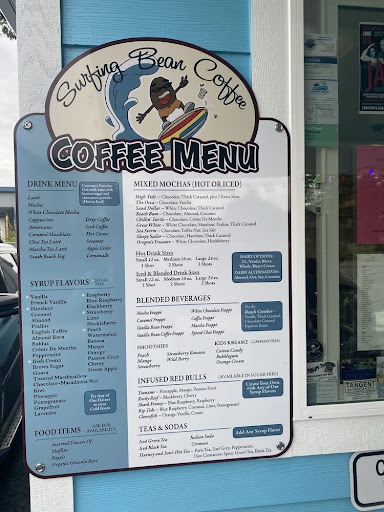 Surfing Bean Coffee
COFFEE MENU
DRINK MENU
Latté
Mocha
White Chocolate Mocha
Cappuccino
Drip Coffee
Americano
Iced Coffee
Caramel Macchiato
Hot Cocoa
Chai Tea Latté
Steamer
Matcha Tea Latté
Apple Cider
South Beach Fog
Lemonade
SYRUP FLAVORS
Vanilla
French Vanilla
Hazelnut
Coconut
Almond
Praline
English Toffee
Almond Roca
Caramel
Crème De Menthe
Peppermint
Irish Cream
Brown Sugar
Cinnamon
Toasted Marshmallow
Chocolate-Macadamia Nut
Kiwi
Pineapple
Pomegranate
Grapefruit
Lavender
Raspberry
Blue Raspberry
Blackberry
Strawberry
Lime
Huckleberry
Peach
Watermelon
Banana
Mango
Orange
Passion Fruit
Cherry
Green Apple
Try Any of
Our Flavors
in Your
Cold Foam
FOOD ITEMS
ASK FOR
AVAILABILITY
Assorted Flavors Of:
Muffins
Bagels
Organic Granola Bars
MIXED MOCHAS (HOT OR ICED)
High Tide – Chocolate, Thick Caramel, plus 2 Extra Shots
The Orca – Chocolate, Vanilla
Sand Dollar – White Chocolate, Thick Caramel
Beach Bum – Chocolate, Almond, Coconut
Chillin' Turtle – Chocolate, Crème De Menthe
Great White – White Chocolate, Hazelnut, Praline, Thick Caramel
Sea Storm – Chocolate, Toffee Nut, Sea Salt
Sleepy Sailor – Chocolate, Hazelnut, Thick Caramel
Oregon's Treasure – White Chocolate, Huckleberry
Hot Drink Sizes
Small 12 oz. Medium 16 oz. Large 20 oz.
Iced & Blended Drink Sizes
Small 12 oz. Medium 16 oz. Large 24 oz.
DAIRY OPTIONS:
2%, Nonfat, Breve,
Whole, Heavy Cream
DAIRY ALTERNATIVES:
Almond, Oat, Soy, Coconut
BLENDED BEVERAGES
Mocha Frappé
Caramel Frappé
Vanilla Bean Frappé
Vanilla Bean Coffee Frappé
White Chocolate Frappé
Coffee Frappé
Matcha Frappé
Spiced Chai Frappé
Try the
Beach Comber –
Vanilla, Thick Caramel,
Chocolate Covered
Espresso Beans
SMOOTHIES
Peach
Mango
Strawberry
Strawberry Banana
Wild Berry
KIDS KREAMZ (CAFFEINE FREE)
Cotton Candy
Bubblegum
Orange Cream
INFUSED RED BULLS (AVAILABLE IN SUGAR FREE)
Tsunami – Pineapple, Mango, Passion Fruit
Rocky Reef – Blackberry, Cherry
Shark Frenzy – Blue Raspberry, Raspberry
Rip Tide – Blue Raspberry, Coconut, Lime, Pomegranate
Clownfish – Orange, Vanilla, Cream
Create Your Own
With Any of Our
Syrup Flavors
TEAS & SODAS
Iced Green Tea
Iced Black Tea
Italian Soda
Cremosa
Add Any Syrup Flavor
TANGENT